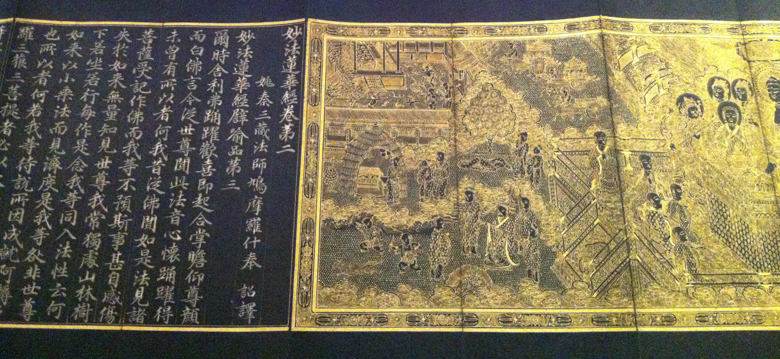 妙法蓮華經卷第二
姚秦三藏法師鳩摩羅什奉 詔譯
妙法蓮華經譬喻品第三
爾時舍利弗踊躍歡喜即起合掌瞻仰尊顏
而白佛言今從世尊聞此法音心懷踊躍得
未曾有所以者何我昔從佛聞如是法見諸
菩薩受記作佛而我等不預斯事甚自感傷
失於如來無量知見世尊我常獨處山林樹
下若坐若行每作是念我等同入法性云何
如來以小乘法而見濟度是我等咎非世尊
也所以者何若我等待說所因成就阿耨
羅三藐三菩提者必以